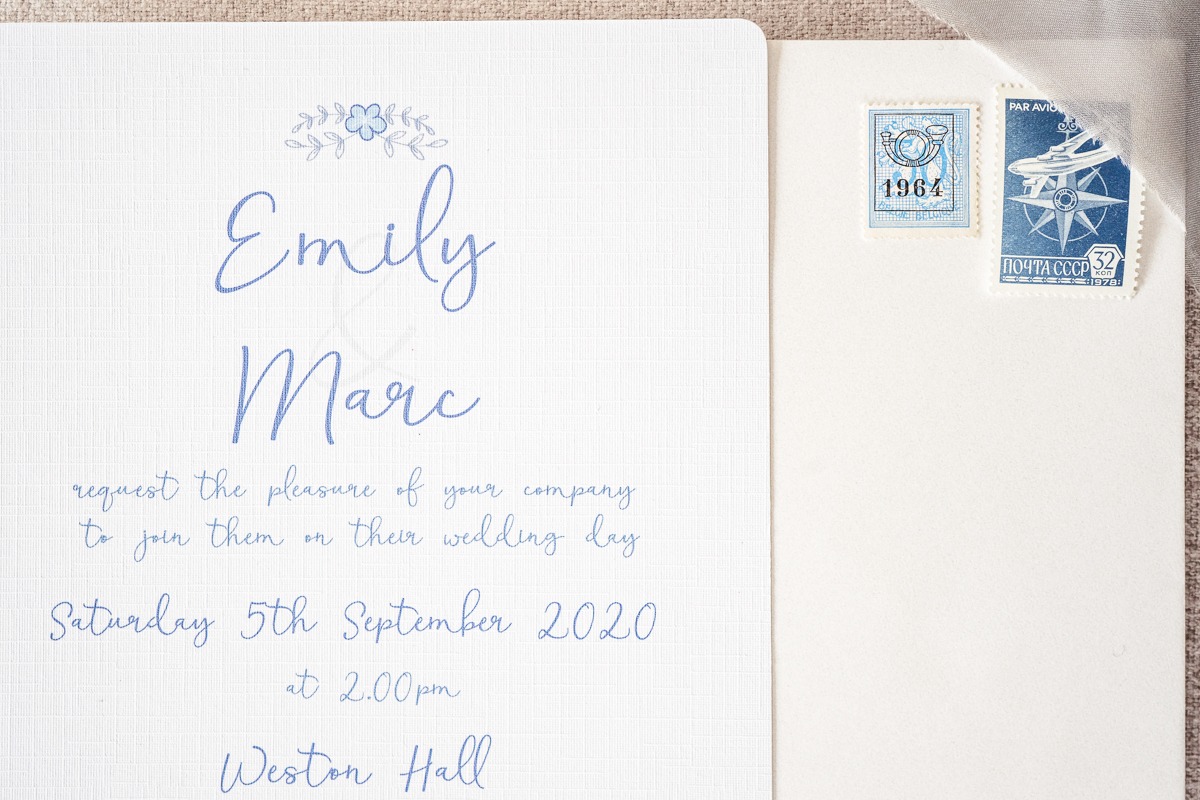 Emily
&
Marc
request the pleasure of your company
to join them on their wedding day
Saturday 5th September 2020
at 2.00pm
Weston Hall
50
1964
BELGIE BELGIQUE
PAR AVION
ПОЧТА СССР
32
КОП
1978